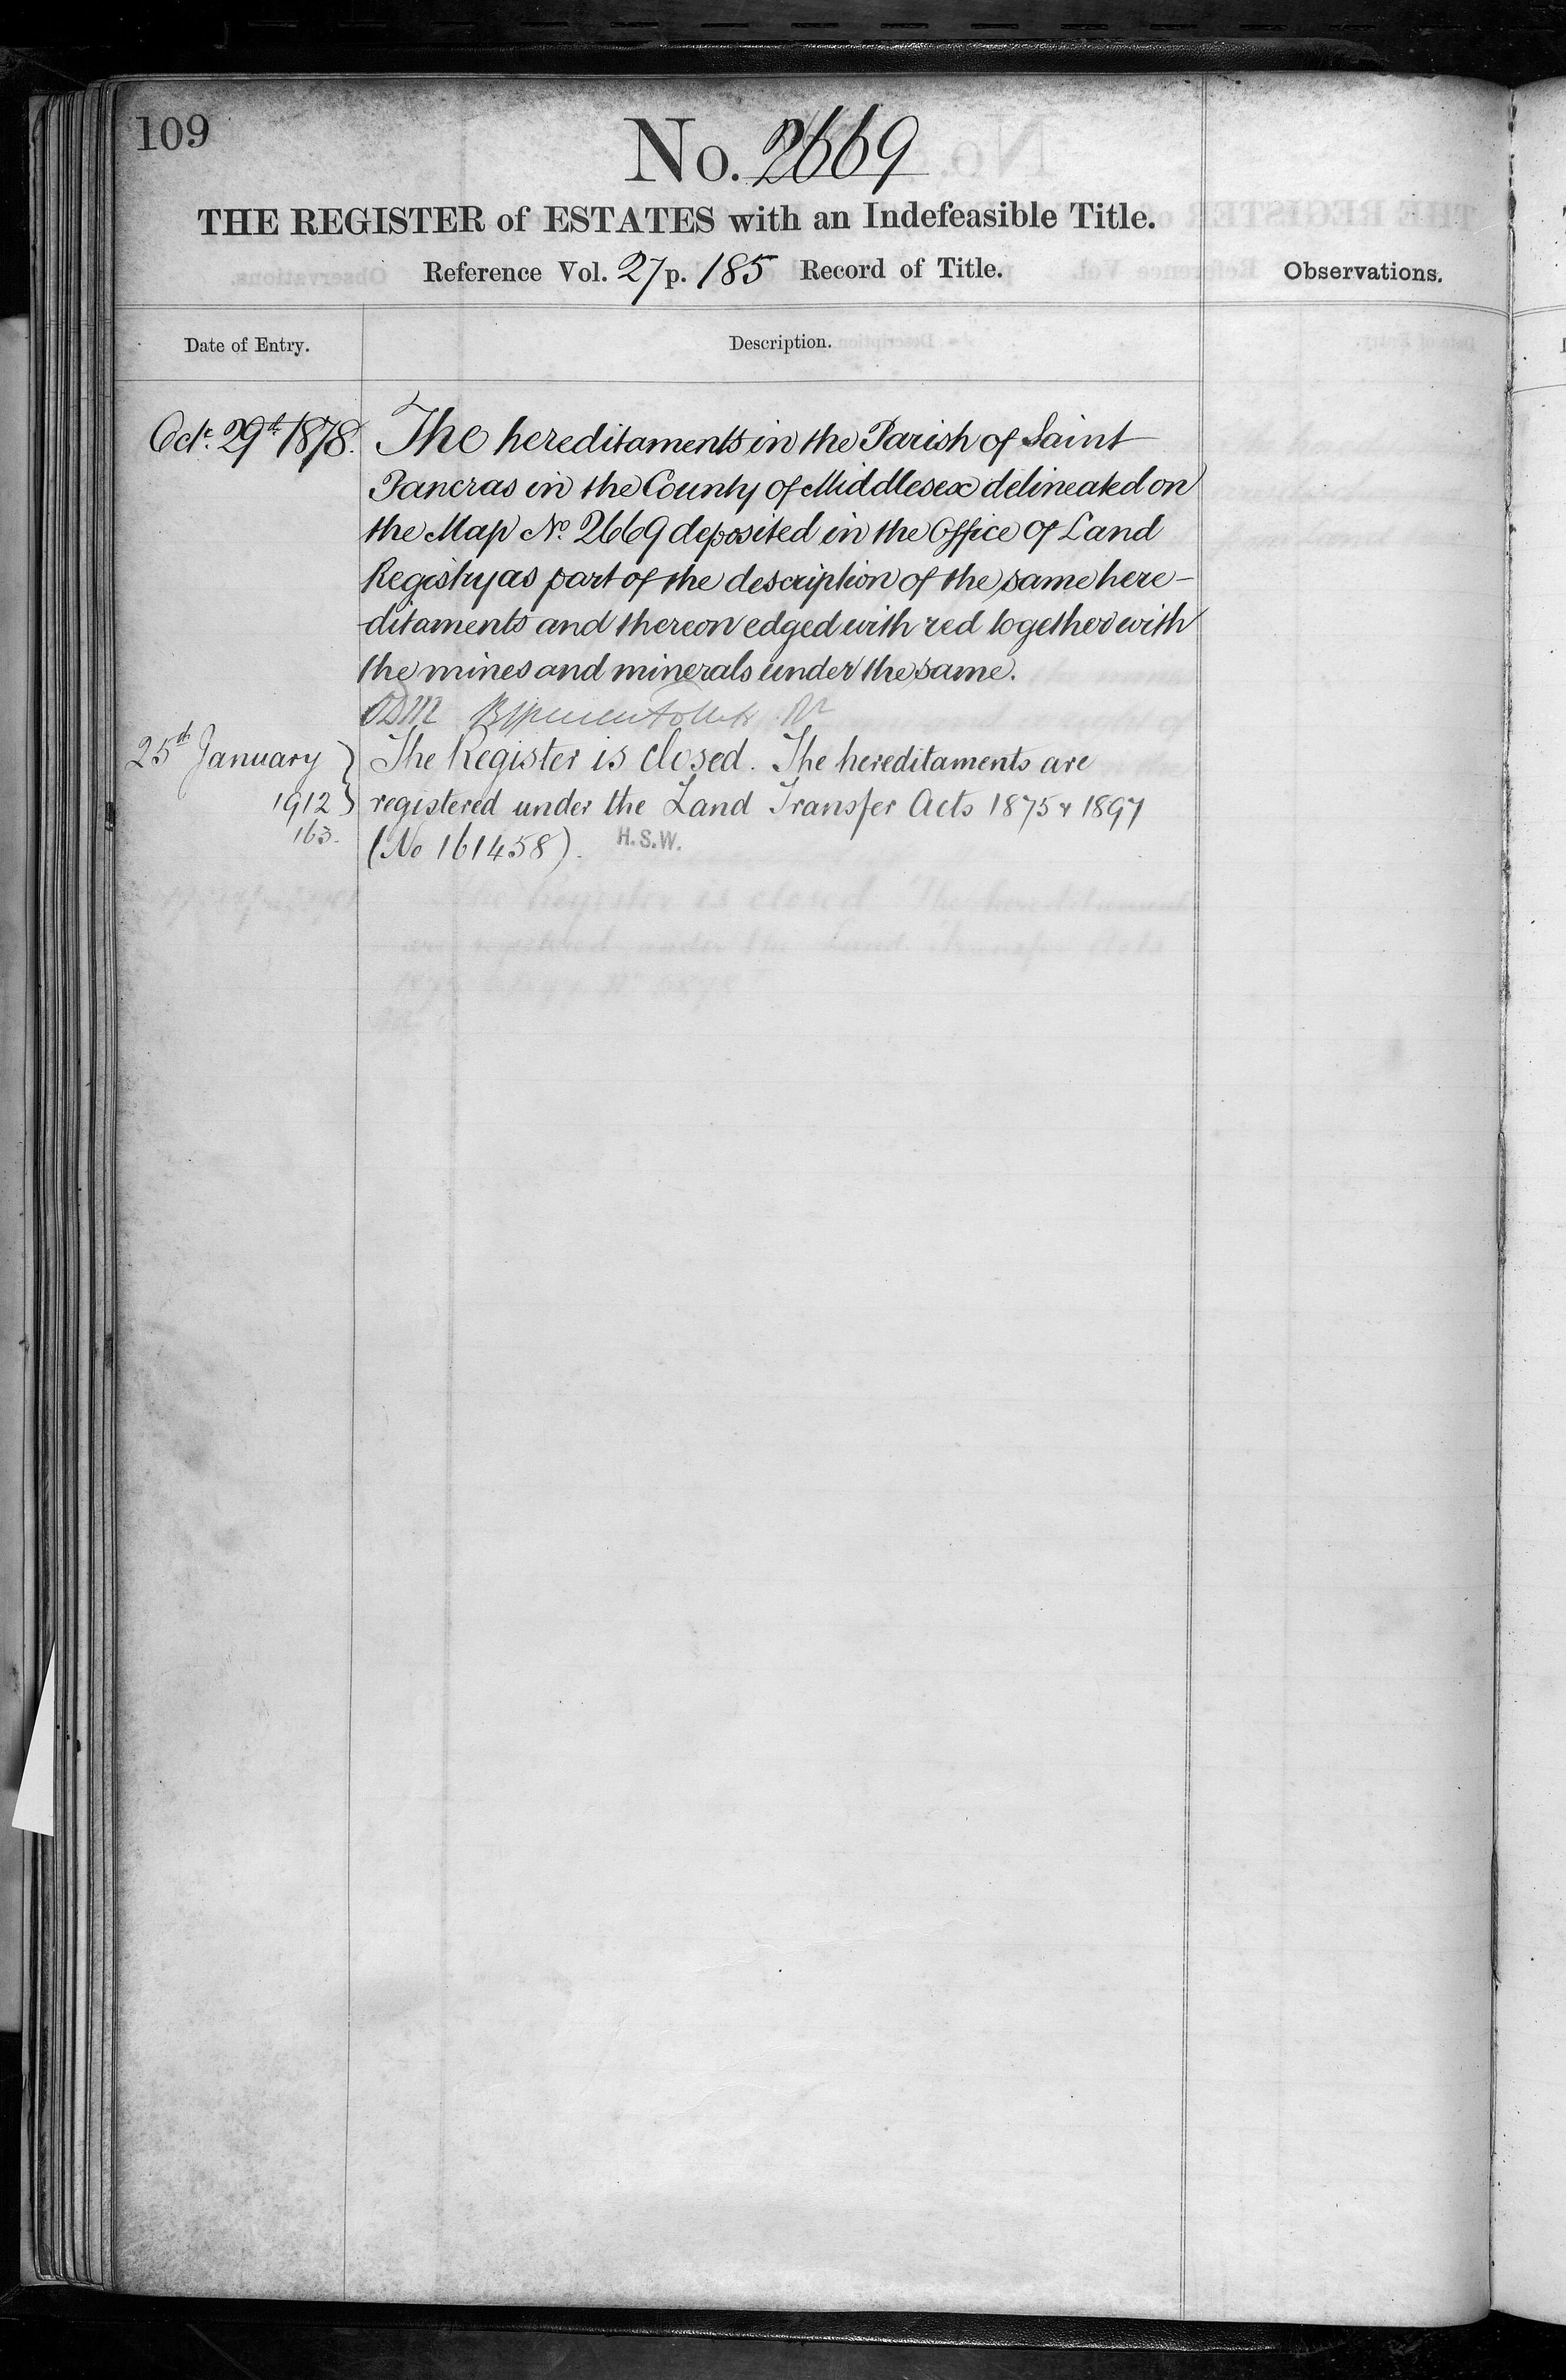 109
No. 2669
THE REGISTER of ESTATES with an Indefeasible Title.
Reference Vol. 27 p. 185 Record of Title.
Observations.
Date of Entry.
Description.
Octr. 29th 1878. The hereditaments in the Parish of Saint
Pancras in the County of Middlesex delineated on
the Map No. 2669 deposited in the Office of Land
Registry as part of the description of the same here-
ditaments and thereon edged with red together with
the mines and minerals under the same.
25th January } The Register is closed. The hereditaments are
1912 } registered under the Land Transfer Acts 1875 & 1897
163. (No 161458). H.S.W.